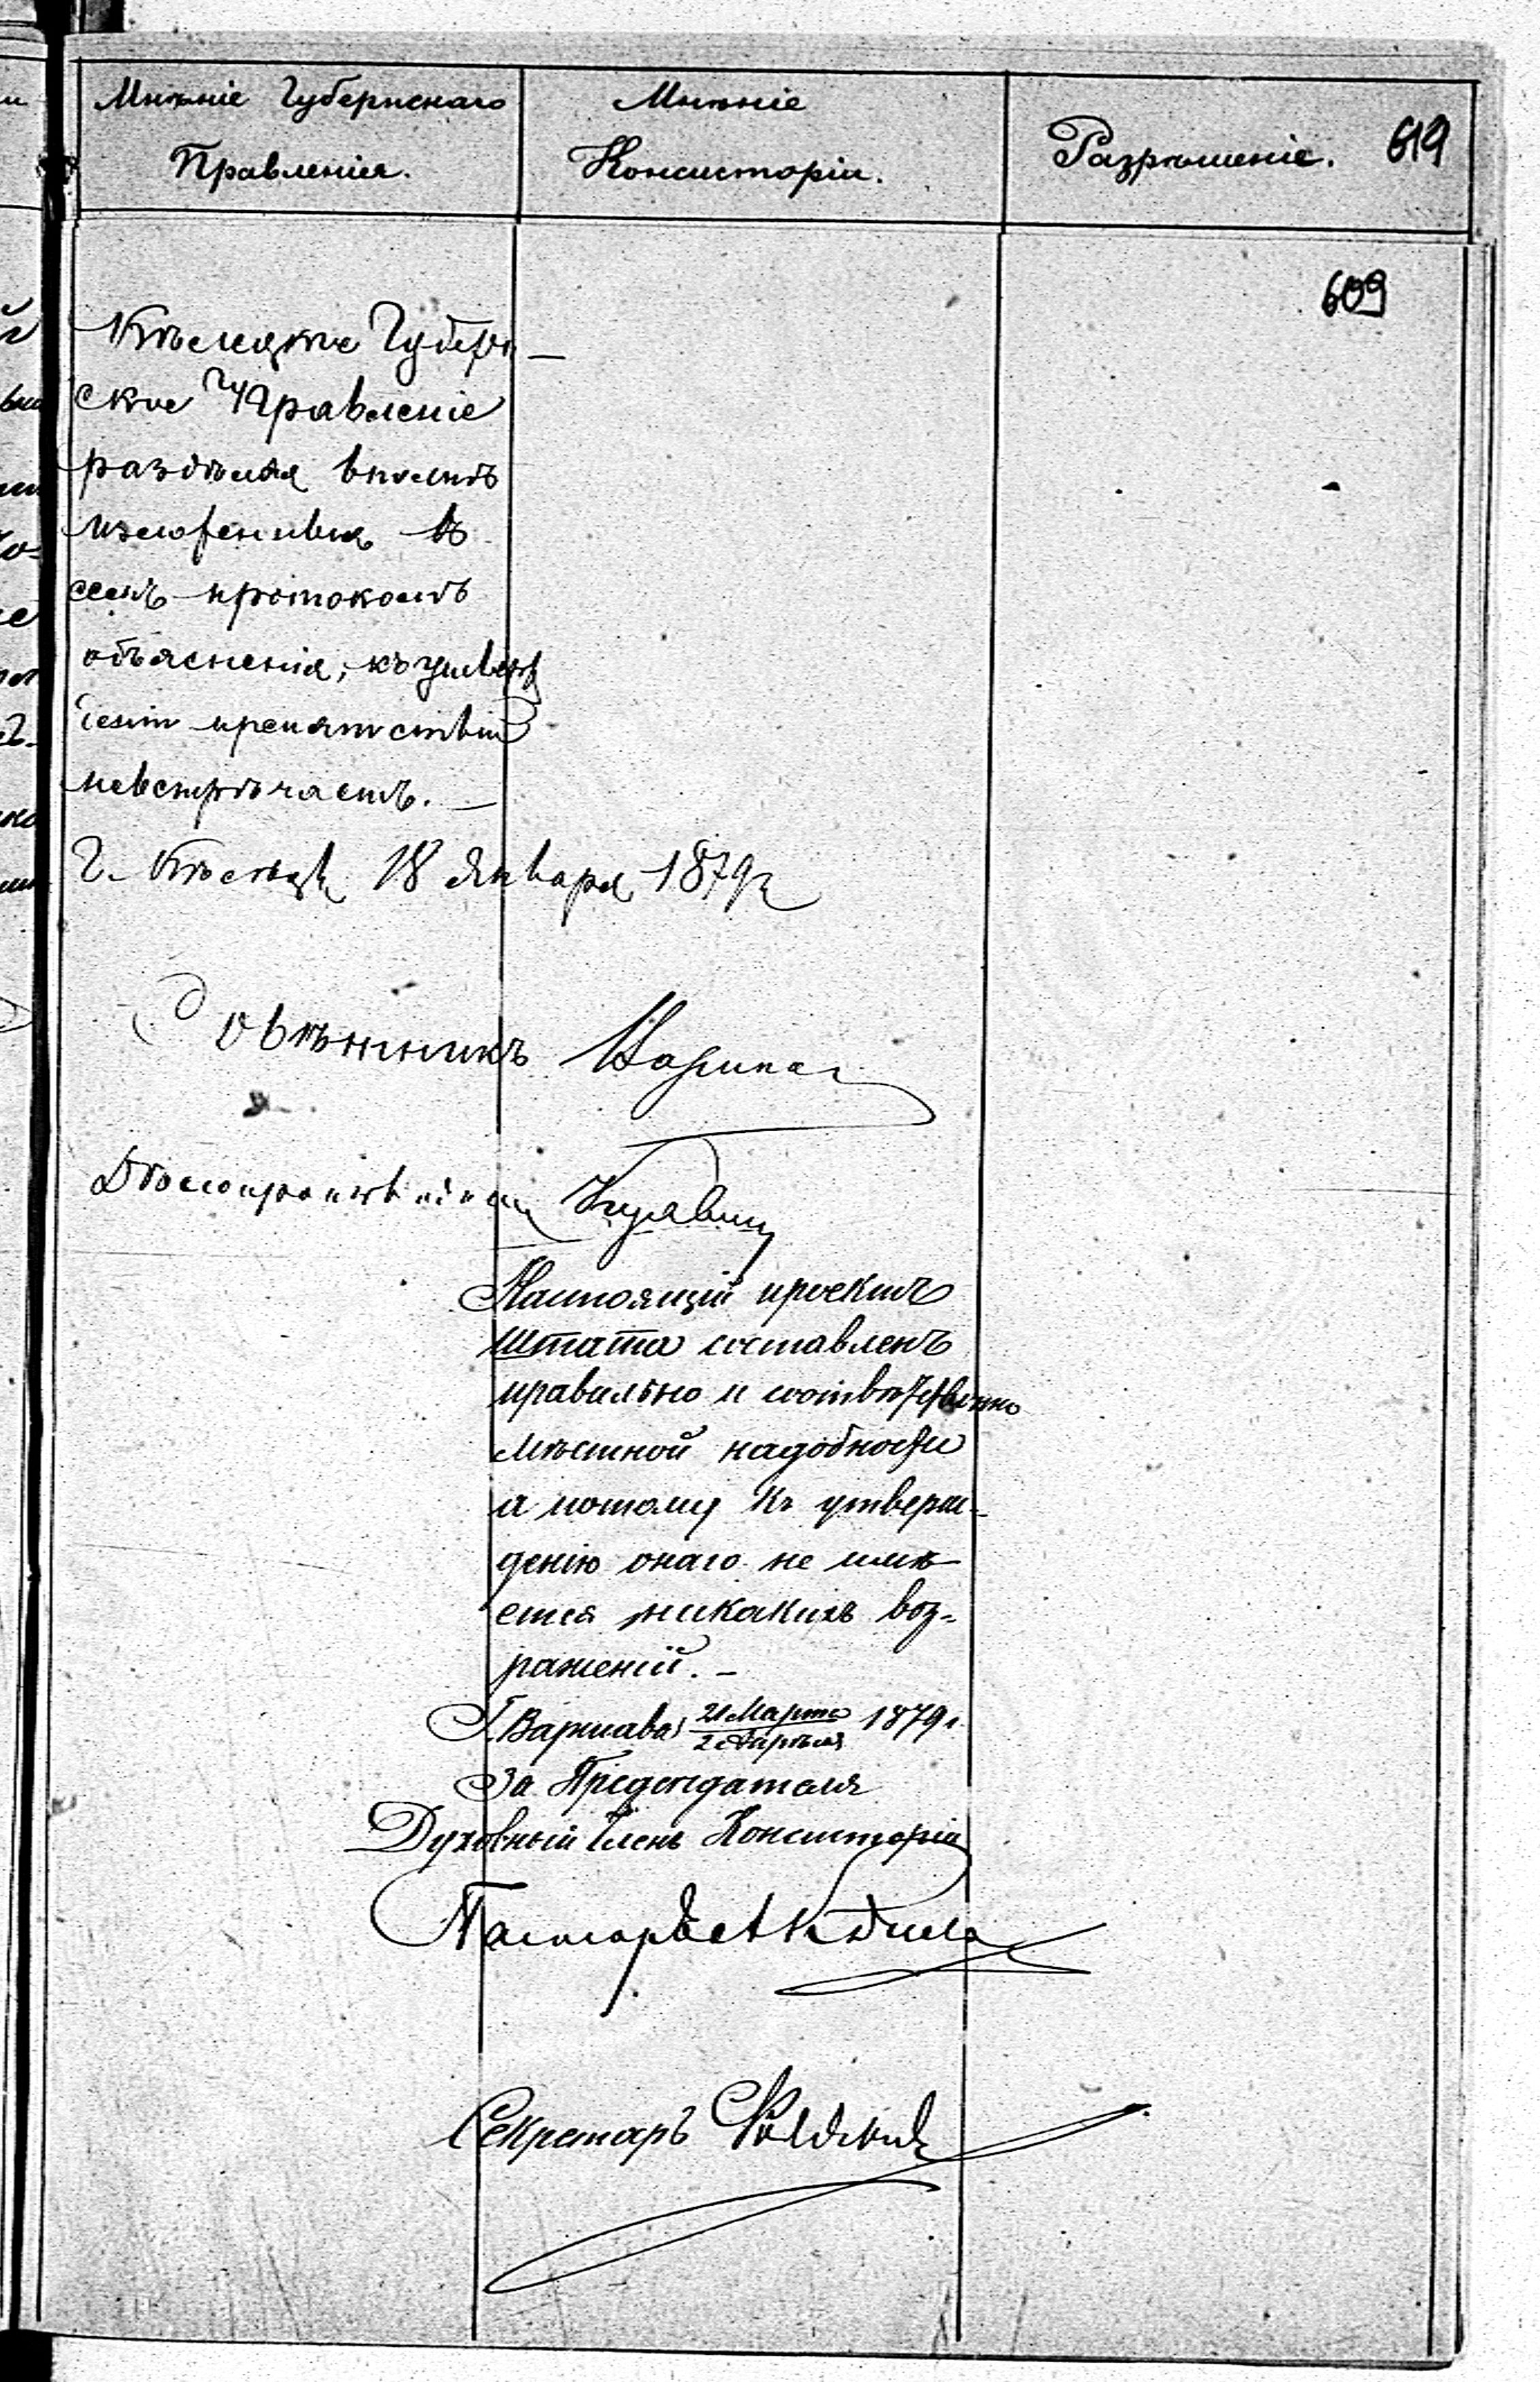 Мнѣніе Губернскаго
Правленія.
Мнѣніе
Консисторіи.
Разрѣшеніе.
619
609
Кѣлецкое Губерн-
ское Управленіе
раздѣляя вполнѣ
изложенныя въ
семъ протоколѣ
объясненія, къ утверж
препятствій
невстрѣчаетъ. —
Г. Кѣльцы, 18 Января 1879 г
Совѣтникъ
Дѣлопроизводитель
Настоящій проектъ
штата составленъ
правильно и соотвѣтственно
мѣстной надобности
а потому къ утверж-
денію онаго не имѣ-
ется никакихъ воз-
раженій. —
Г. Варшава, 21 Марта
2 Апрѣля 1879 г.
За Предсѣдателя
Духовный Членъ Консисторіи
Пасторъ
Секретарь